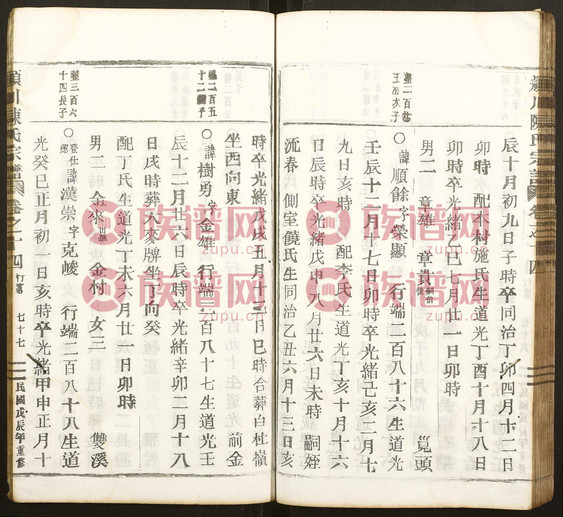 潁川陳氏宗譜 卷之十四 行蕃
辰十月初九日子時卒同治丁卯四月十二日
卯時 配木村施氏生道光丁酉十月十八日
卯時卒光緒乙巳七月廿一日卯時
男二 章雄 章貴 筧頭
諱順餘字榮顯 行端二百八十六生道光
壬辰十二月十七日卯時卒光緒己亥二月十
九日亥時 配李氏生道光丁亥十月十六
日辰時卒光緒戊申八月廿六日未時 嗣姪
沅春 側室饒氏生同治乙丑六月十三日亥
時卒光緒戊戌五月十二日巳時合葬白杜嶺
坐西向東 前金
諱樹勇字金雄 行端二百八十七生道光壬
辰十二月廿六日辰時卒光緒辛卯二月十八
日戌時葬大麥牌坐丁向癸
配丁氏生道光丁未六月廿一日卯時
男二 金來 金村 女三 雙溪
登仕諱漢崇字克峻 行端二百八十八生道
光癸巳正月初一日亥時卒光緒甲申正月十
端三百六
十四長子
潁川陳氏宗譜 卷之十四 行蕃 七十七 民國戊辰年重修
族谱网
zupu.cn
族谱网
zupu.cn
族谱网
zupu.cn
族谱网
zupu.cn